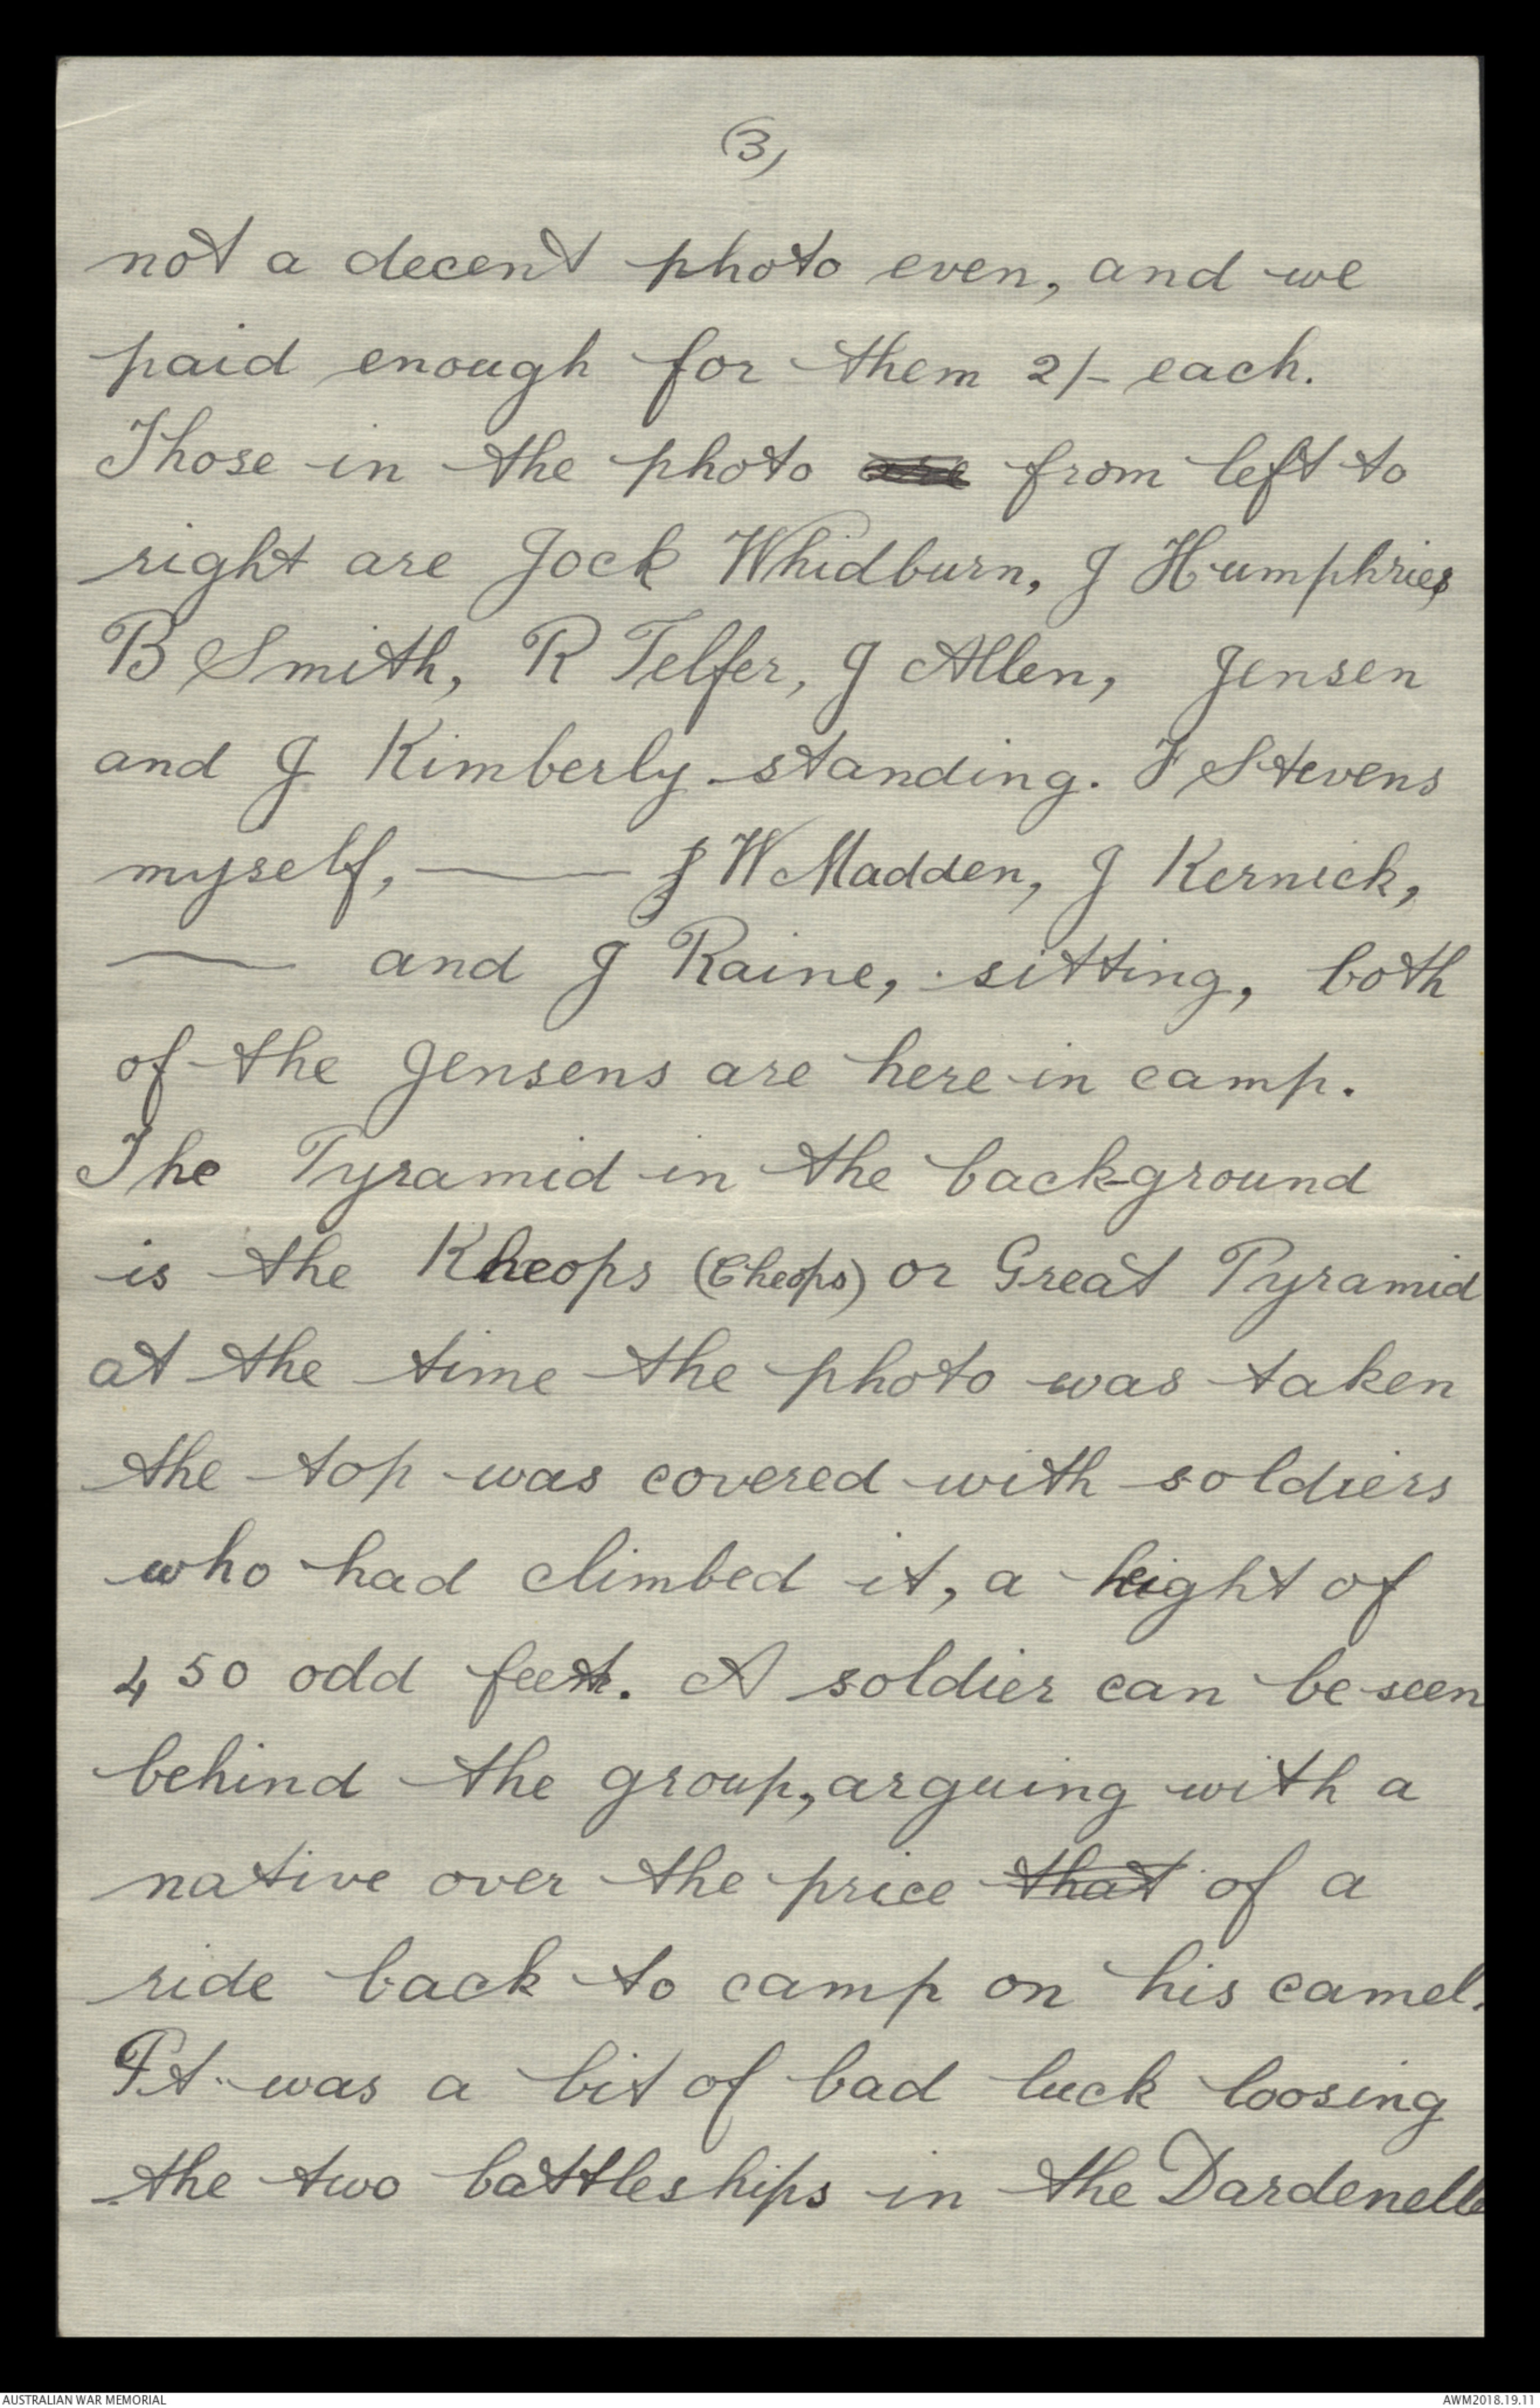 (3)
not a decent photo even, and we
paid enough for them 2/- each.
Those in the photo are from left to
right are Jock Whidburn, J Humphries
B Smith, R Telfer, J Allen, Jensen
and J Kimberly standing. F Stevens
myself, —— J W Madden, J Kernick,
—— and J Raine, sitting, both
of the Jensens are here in camp.
The Pyramid in the back-ground
is the Kheops (Cheops) or Great Pyramid
at the time the photo was taken
the top was covered with soldiers
who had climbed it, a height of
450 odd feet. A soldier can be seen
behind the group, arguing with a
native over the price that of a
ride back to camp on his camel.
It was a bit of bad luck loosing
the two battleships in the Dardenelle
AUSTRALIAN WAR MEMORIAL
AWM2018.19.11